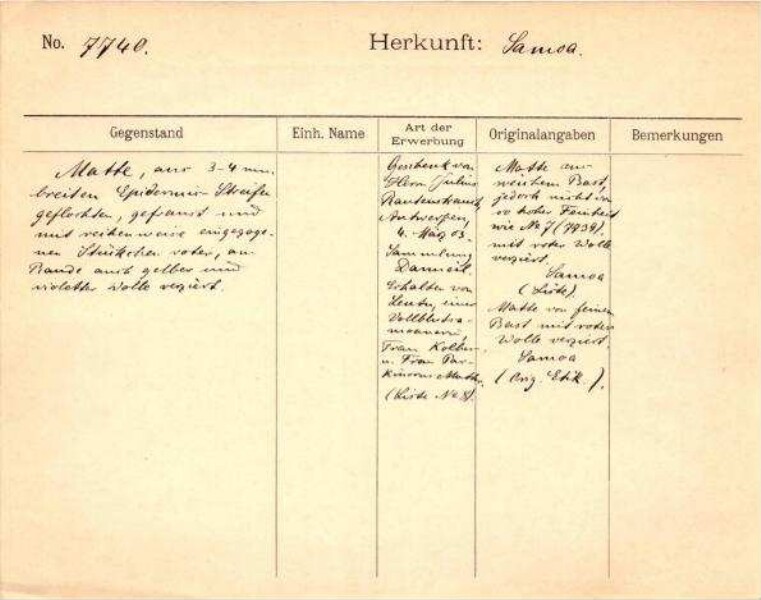 No. 7740. Herkunft: Samoa.
Gegenstand
Einh. Name
Art der
Erwerbung
Originalangaben
Bemerkungen
Matte, aus 3-4 mm.
breiten Epidermis-Streifen
geflochten, gefranst und
mit reihenweise eingezoge-
nen Stückchen roter, am
Rande auch gelber und
violetter Wolle verziert.
Geschenk von
Herrn Julius
Rautenstrauch,
Antwerpen,
4. März 03.
Sammlung
Danneil.
Erhalten von
einer
Vollblutsa-
moanerin,
Frau Kolbe
u. Frau Par-
kinsons Mutter.
(Liste No 8).
Matte aus
weichem Bast,
jedoch nicht von
so hoher Feinheit
wie No 7 (7739).
mit roter Wolle
verziert.
Samoa
(Liste).
Matte von feinem
Bast mit roter
Wolle verziert.
Samoa
(Orig. Etik.).